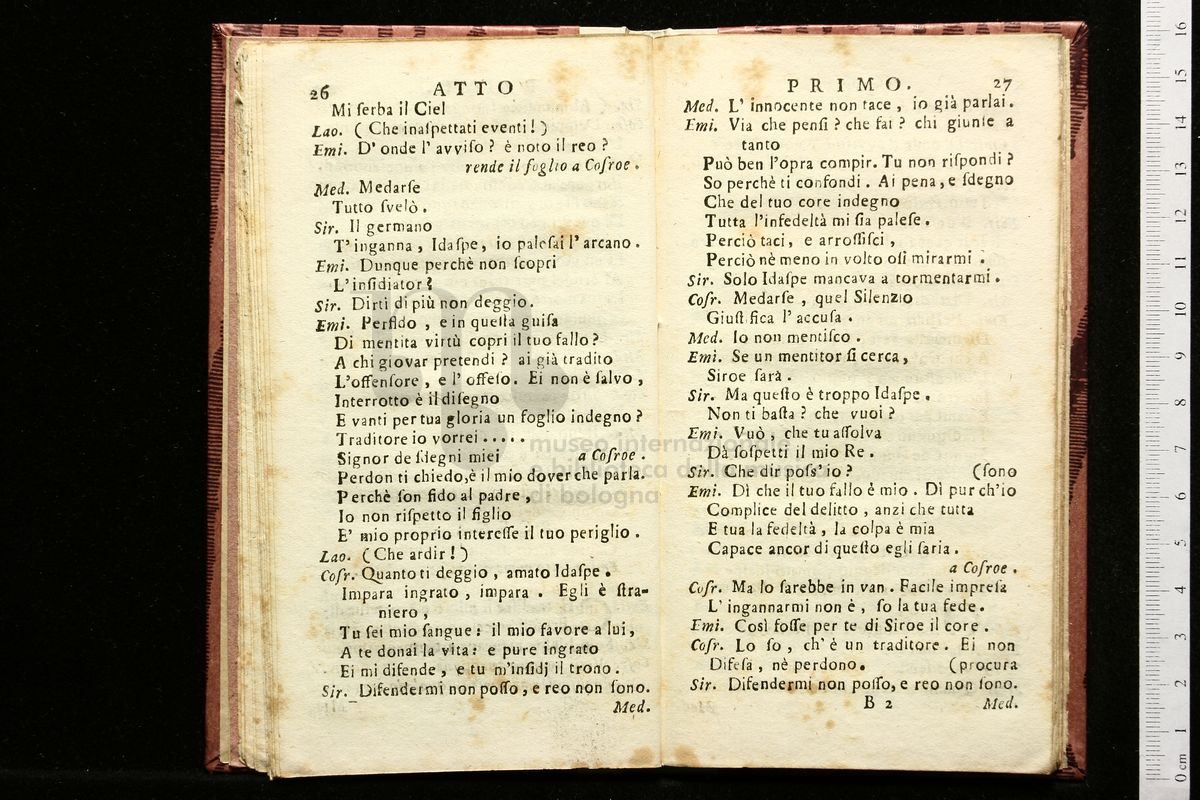 26 ATTO
Mi ſerba il Ciel
Lao. ( Che inaſpettati eventi! )
Emi. D' onde l' avviſo ? è noto il reo ?
rende il foglio a Coſroe .
Med. Medarſe
Tutto ſvelò .
Sir. Il germano
T' inganna , Idaſpe, io paleſai l' arcano .
Emi. Dunque perchè non ſcopri
L' inſidiator ?
Sir. Dirti di più non deggio .
Emi. Perfido , e in queſta guiſa
Di mentita virtù copri il tuo fallo ?
A chi giovar pretendi ? ai già tradito
L'offenſore , e l' offeſo. Ei non è ſalvo ,
Interrotto è il diſegno
E vanti per tua gloria un foglio indegno ?
Traditore io vorrei . . . . .
Signor de ſdegni miei a Coſroe .
Perdon ti chiedo,è il mio dover che parla.
Perchè ſon fido al padre ,
Io non riſpetto il figlio
E' mio proprio intereſſe il tuo periglio .
Lao. ( Che ardir ! )
Coſr. Quanto ti deggio , amato Idaſpe .
Impara ingrato , impara . Egli è ſtra-
niero ,
Tu ſei mio ſangue : il mio favore a lui ,
A te donai la vita : e pure ingrato
Ei mi difende , e tu m'inſidj il trono .
Sir. Difendermi non poſſo , e reo non ſono.
Med.
PRIMO. 27
Med. L' innocente non tace , io già parlai .
Emi. Via che penſi ? che fai ? chi giunſe a
tanto
Può ben l'opra compir. Tu non riſpondi ?
So perchè ti confondi . Ai pena , e ſdegno
Che del tuo core indegno
Tutta l'infedeltà mi ſia paleſe .
Perciò taci , e arroſſiſci ,
Perciò nè meno in volto oſi mirarmi .
Sir. Solo Idaſpe mancava a tormentarmi .
Coſr. Medarſe , quel Silenzio
Giuſt fica l' accuſa .
Med. Io non mentiſco .
Emi. Se un mentitor ſi cerca ,
Siroe ſarà .
Sir. Ma queſto è troppo Idaſpe .
Non ti baſta ? che vuoi ?
Emi. Vuò , che tu aſſolva
Dà ſoſpetti il mio Re .
Sir. Che dir poſs' io ? (ſono
Emi. Dì che il tuo fallo è mio . Dì pur ch'io
Complice del delitto , anzi che tutta
E tua la fedeltà , la colpa è mia
Capace ancor di queſto egli ſaria .
a Coſroe .
Coſr. Ma lo ſarebbe in van . Facile impreſa
L' ingannarmi non è , ſo la tua fede .
Emi. Così foſſe per te di Siroe il core .
Coſr. Lo ſo , ch' è un traditore . Ei non
Difeſa , nè perdono . (procura
Sir. Difendermi non poſſo, e reo non ſono.
B 2 Med.
museo internazionale
e biblioteca della musica
di bologna
0 cm 1 2 3 4 5 6 7 8 9 10 11 12 13 14 15 16